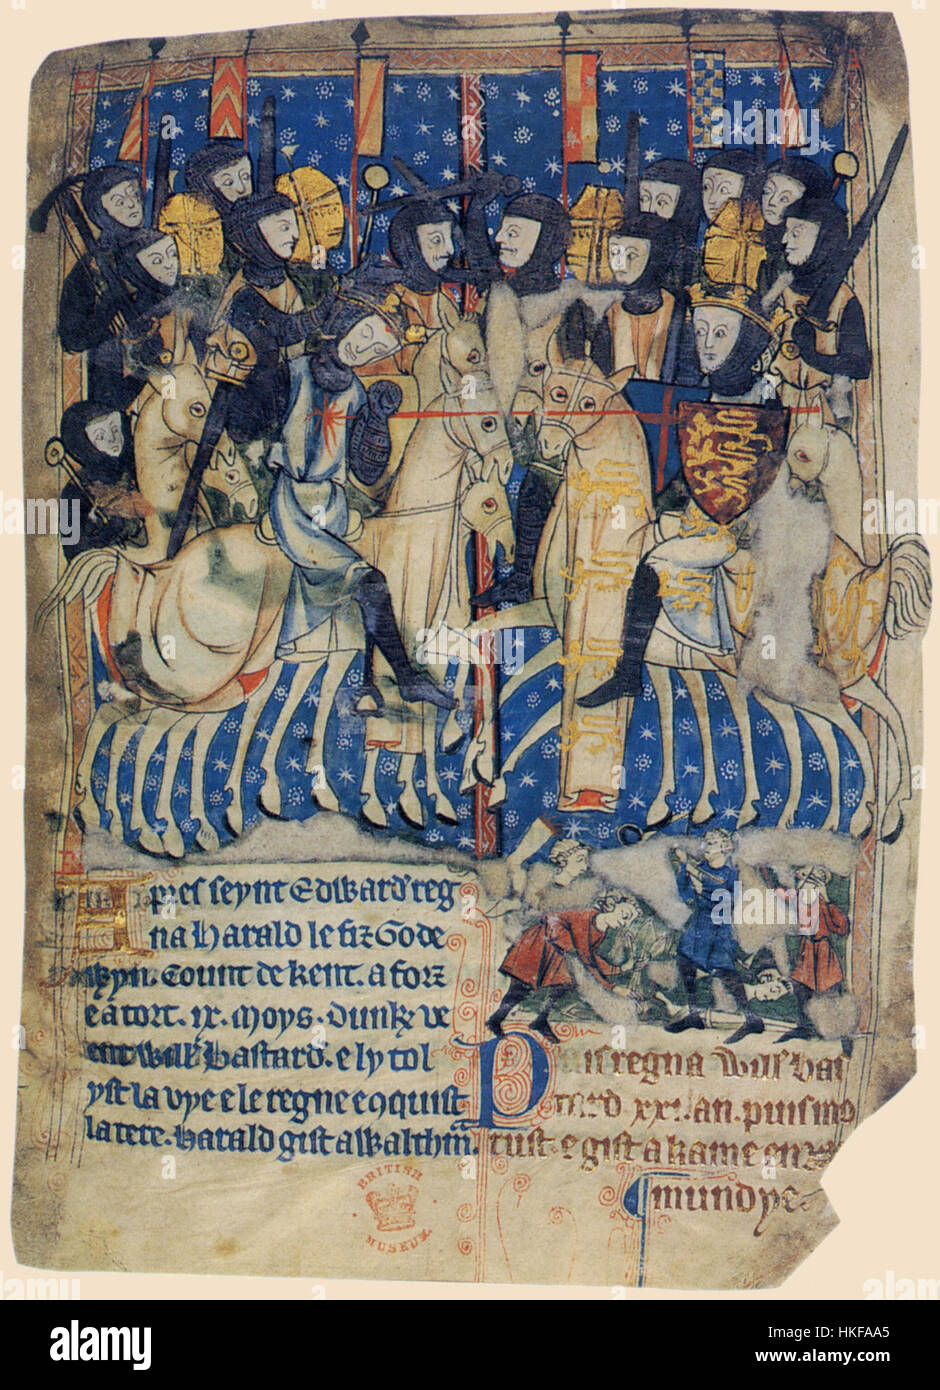 Apres seynt Edward' reg
na Harald le fiz Gode
wyn. Count de Kent. a forz
e a tort. ix. moys. dunk ve
ent will' Bastard. e ly tol
yst la vye e le regne e conquist
la tere. Harald gist a Waltham.
Puis regna Will' Bas
tard xxi. an. puis mo
rust. e gist a Kame en
BRITISH
MUSEUM
alamy
Image ID: HKFAA5
www.alamy.com